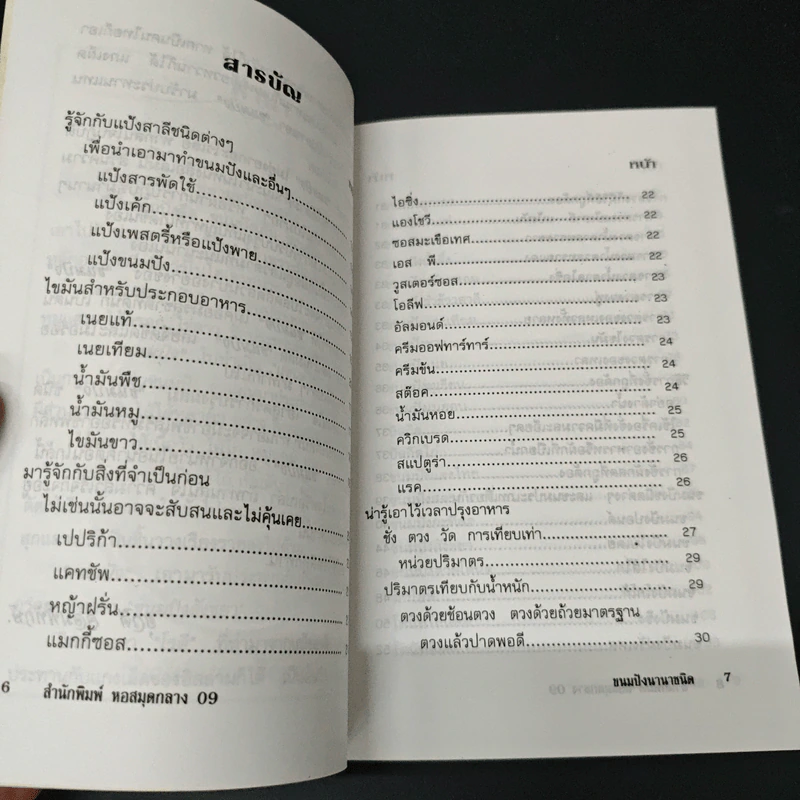 สารบัญ
รู้จักกับแป้งสาลีชนิดต่างๆ
เพื่อนำเอามาทำขนมปังและอื่นๆ
แป้งสารพัดใช้
แป้งเค้ก
แป้งเพสตรี้หรือแป้งพาย
แป้งขนมปัง
ไขมันสำหรับประกอบอาหาร
เนยแท้
เนยเทียม
น้ำมันพืช
น้ำมันหมู
ไขมันขาว
มารู้จักกับสิ่งที่จำเป็นก่อน
ไม่เช่นนั้นอาจจะสับสนและไม่คุ้นเคย
เปปริก้า
แคทชัพ
หญ้าฝรั่น
แมกกี้ซอส
6 สำนักพิมพ์ หอสมุดกลาง 09
หน้า
ไอซิ่ง 22
แองโชวี่ 22
ซอสมะเขือเทศ 22
เอส พี 22
วูสเตอร์ซอส 23
โอลีฟ 23
อัลมอนด์ 23
ครีมออฟทาร์ทาร์ 24
ครีมข้น 24
สต๊อค 24
น้ำมันหอย 25
ควิกเบรด 25
สแปตูร่า 26
แรค 26
น่ารู้เอาไว้เวลาปรุงอาหาร
ชั่ง ตวง วัด การเทียบเท่า 27
หน่วยปริมาตร 29
ปริมาตรเทียบกับน้ำหนัก 29
ตวงด้วยช้อนตวง ตวงด้วยถ้วยมาตรฐาน
ตวงแล้วปาดพอดี 30
ขนมปังนานาชนิด 7